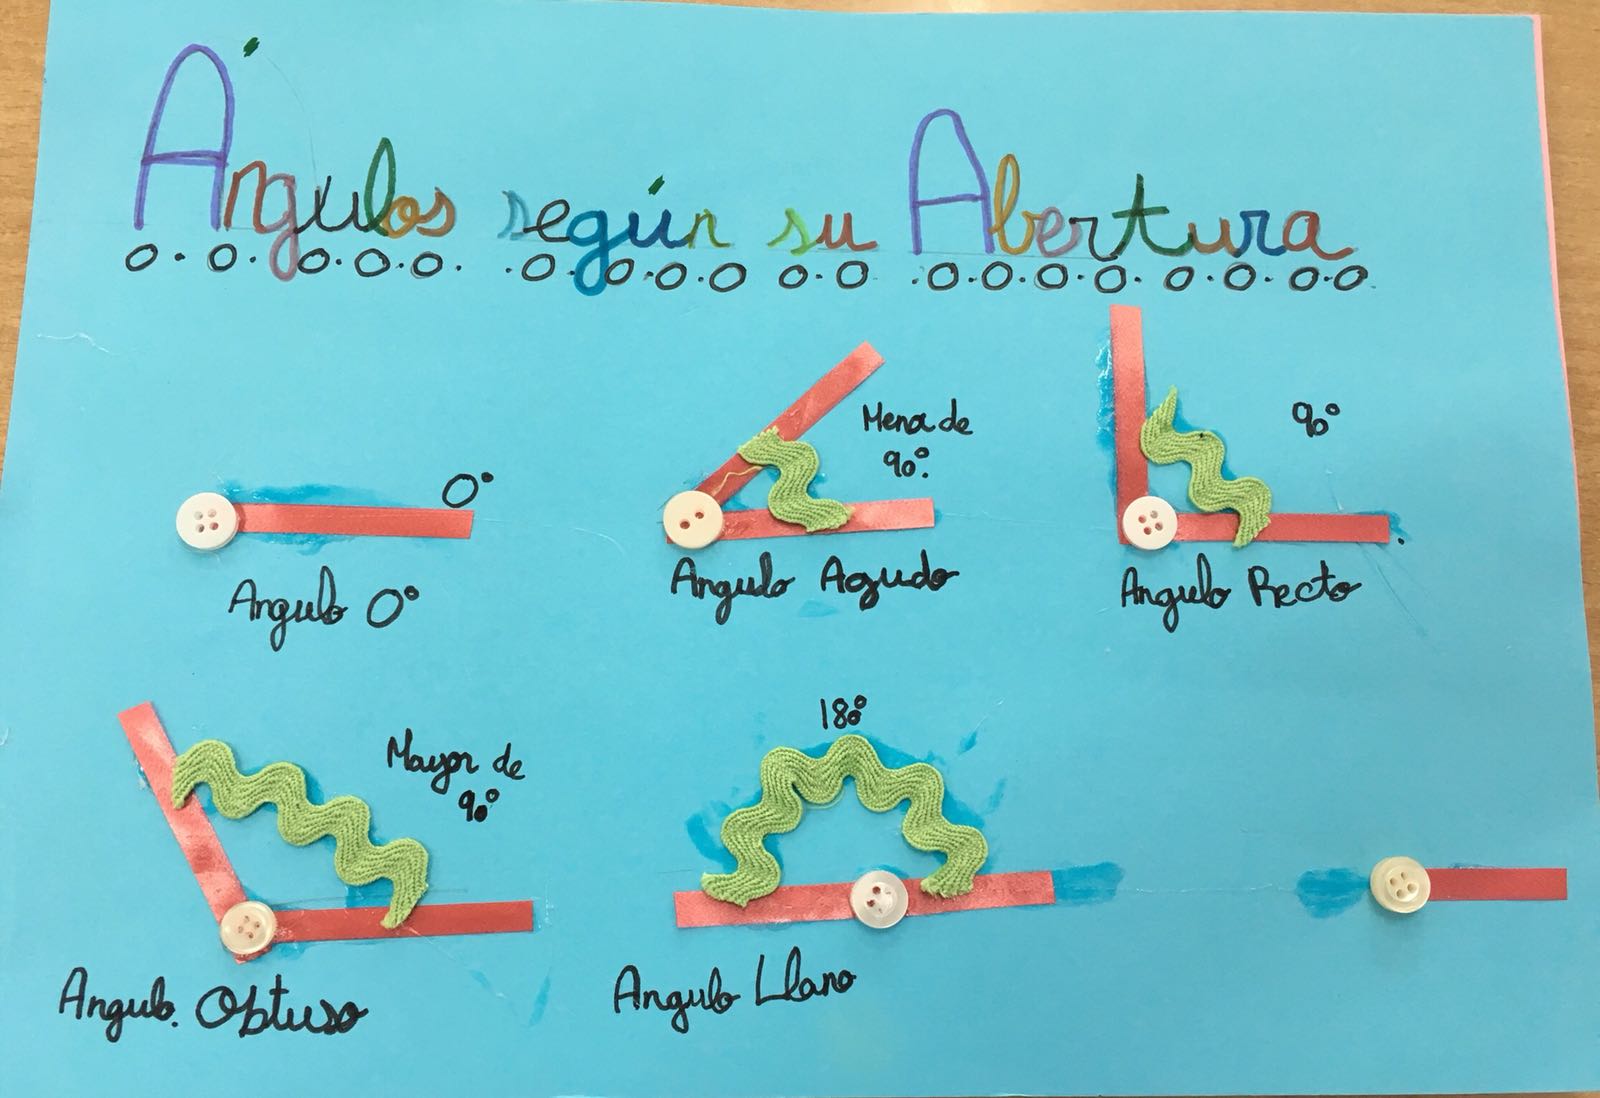 Ángulos según su Abertura
0°
Angulo 0°
Menor de
90°.
Angulo Agudo
90°
Angulo Recto
Mayor de
90°
Angulo. Obtuso
180°
Angulo Llano